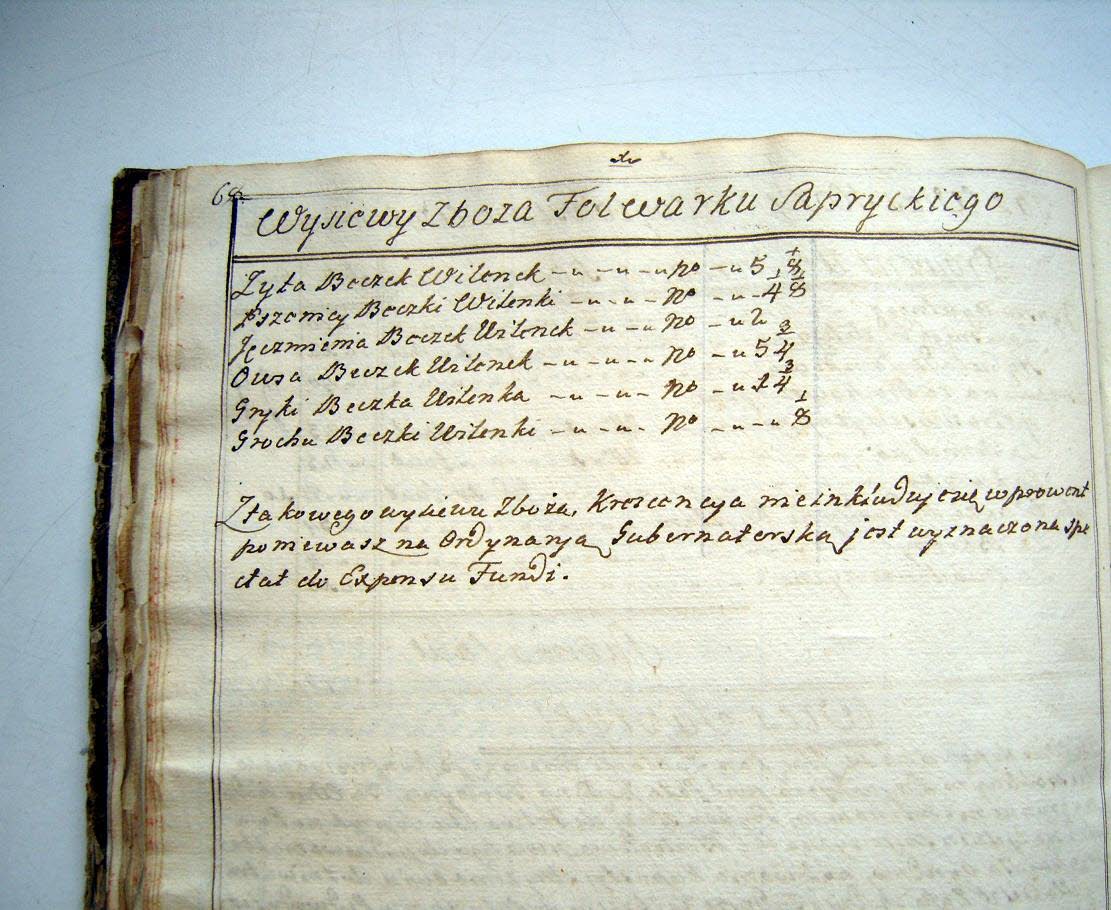 68
Wysiewy Zboża Folwarku Sapryckiego
Żyta Beczek Wilenek – u – u – u No – u 5 1/8
Pszenicy Beczki Wilenki – u – u – No – u – 4 1/8
Jęczmienia Beczek Wilenek – u – u No – u 2
Owsa Beczek Wilenek – u – u – u No – u 5 3/4
Gryki Beczka Wilenka – u – u – No – u 1 3/4
Grochu Beczki Wilenki – u – u – No – u – u 1/8
Ztakowego wysiewu Zboża, Krescencya nieinkluduje się w prowent
poniewasz na Ordynaryą Gubernatorską jest wyznaczona spe
ctat do Expensu Fundi.